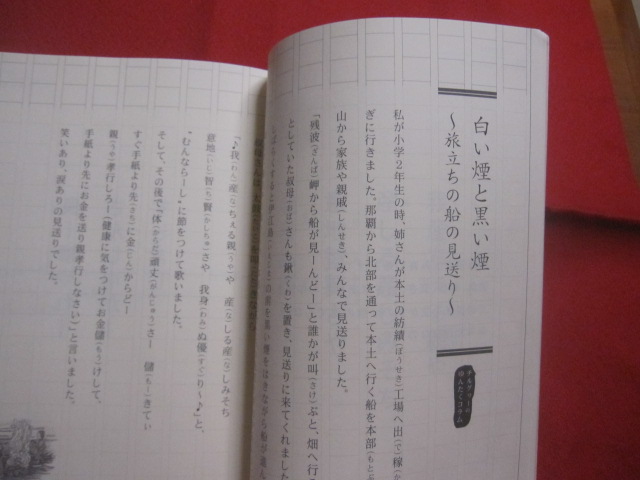 白い煙と黒い煙
～旅立ちの船の見送り～
私が小学2年生の時、姉さんが本土の紡績(ぼうせき)工場へ出(で)稼(か
ぎに行きました。那覇から北部を通って本土へ行く船を本部(もと
山から家族や親戚(しんせき)、みんなで見送りました。
「残波(ざんぱ)岬から船が見ーんどー」と誰かが叫(さけ)ぶと、畑へ行こ
としていた叔母(おば)さんも鍬(くわ)を置き、見送りに来てくれました
「♪我(わん)産(な)ちぇる親(うや)や 産(な)しる産(な)しみそち
意地(いじ)智(じ)賢(かしちゅ)さや 我身(わみ)ぬ優(すぐ)り～♪」と、
"むんならーし"に節をつけて歌いました。
そして、その後で「体(からだ)頑丈(がんじゅう)さー 儲(もー)きてぃ
すぐ手紙より先(さち)に金(じん)からどー
親(うや)孝行しろー(健康に気をつけてお金儲(もう)けして、
手紙より先にお金を送り親孝行しなさい)」と言いました。
笑いあり、涙ありの見送りでした。